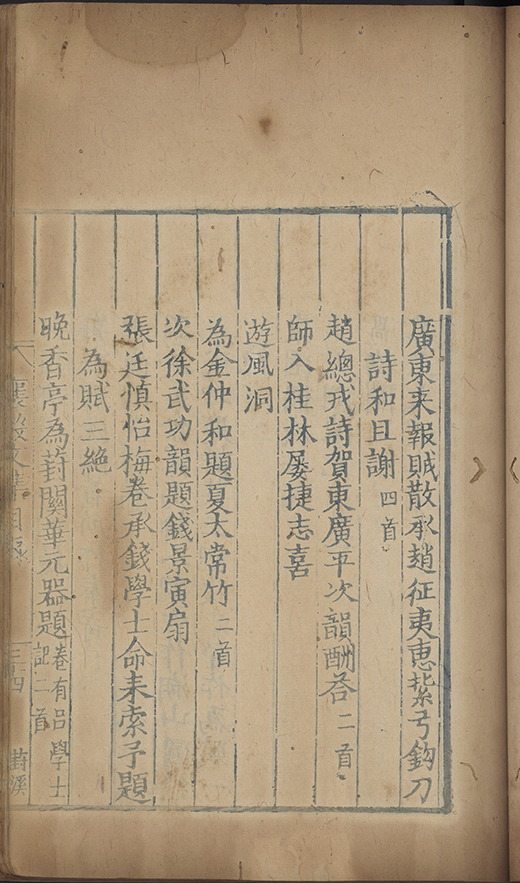 廣東来報賊散承趙征夷惠紫弓鈎刀
詩和且謝四首
趙總戎詩賀東廣平次韻酬荅二首
師入桂林屡捷志喜
遊風洞
為金仲和題夏太常竹二首
次徐武功韻題錢景寅扇
張廷慎怡梅卷承錢學士命耒索予題
為賦三絶
晚香亭為葑關華元器題卷有呂學士記二首
襄毅文集目錄
三四
葑溪